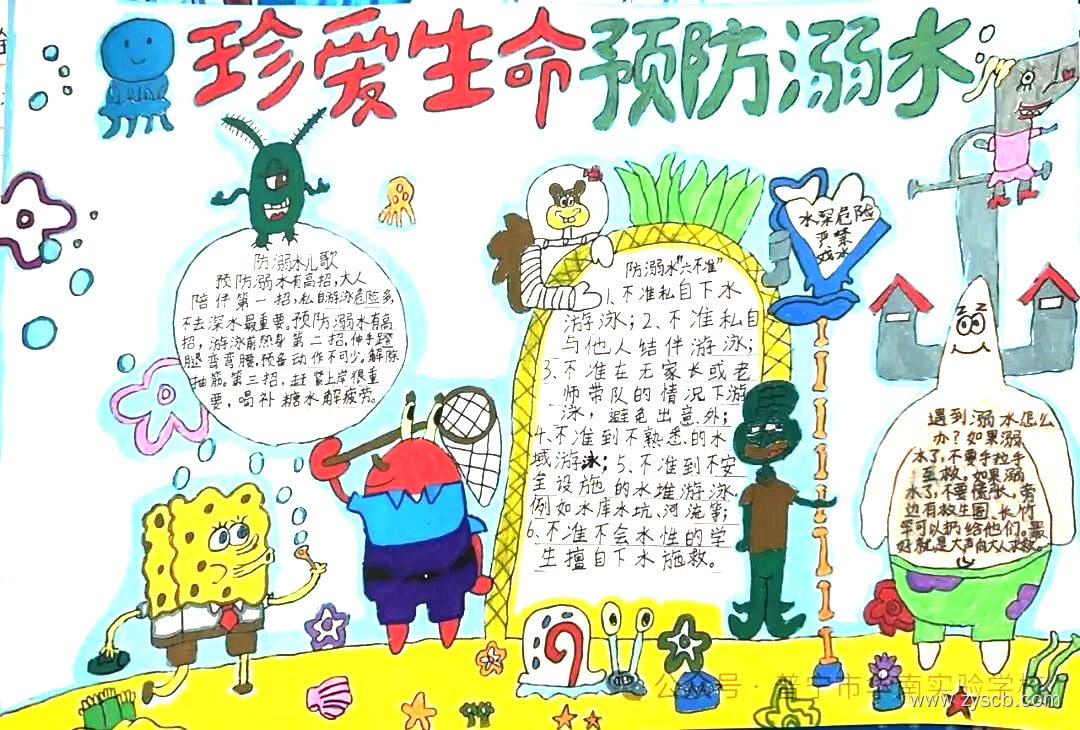 珍爱生命预防溺水
防溺水儿歌
预防溺水有高招,大人
陪伴第一招,私自游泳危险多,
不去深水最重要。预防溺水有高
招,游泳前热身第二招,伸手踢
腿弯弯腰,预备动作不可少。解除
抽筋第三招,赶紧上岸很重
要,喝补糖水解疲劳。
防溺水"六不准"
1、不准私自下水
游泳;2、不准私自
与他人结伴游泳;
3、不准在无家长或老
师带队的情况下游
泳,避免出意外;
4、不准到不熟悉的水
域游泳;5、不准到不安
全设施的水堆游泳,
例如水库水坑、河淹等;
6、不准不会水性的学
生擅自下水施救。
水深危险
严禁
戏水
遇到溺水怎么
办?如果溺
水了,不要手拉手
互救。如果溺
水了,不要慌张,旁
边有救生圈、长竹
竿可以扔给他们。最
好就是大声向大人求救。
公众号·普宁市
南实验学校
www.zyscb.com